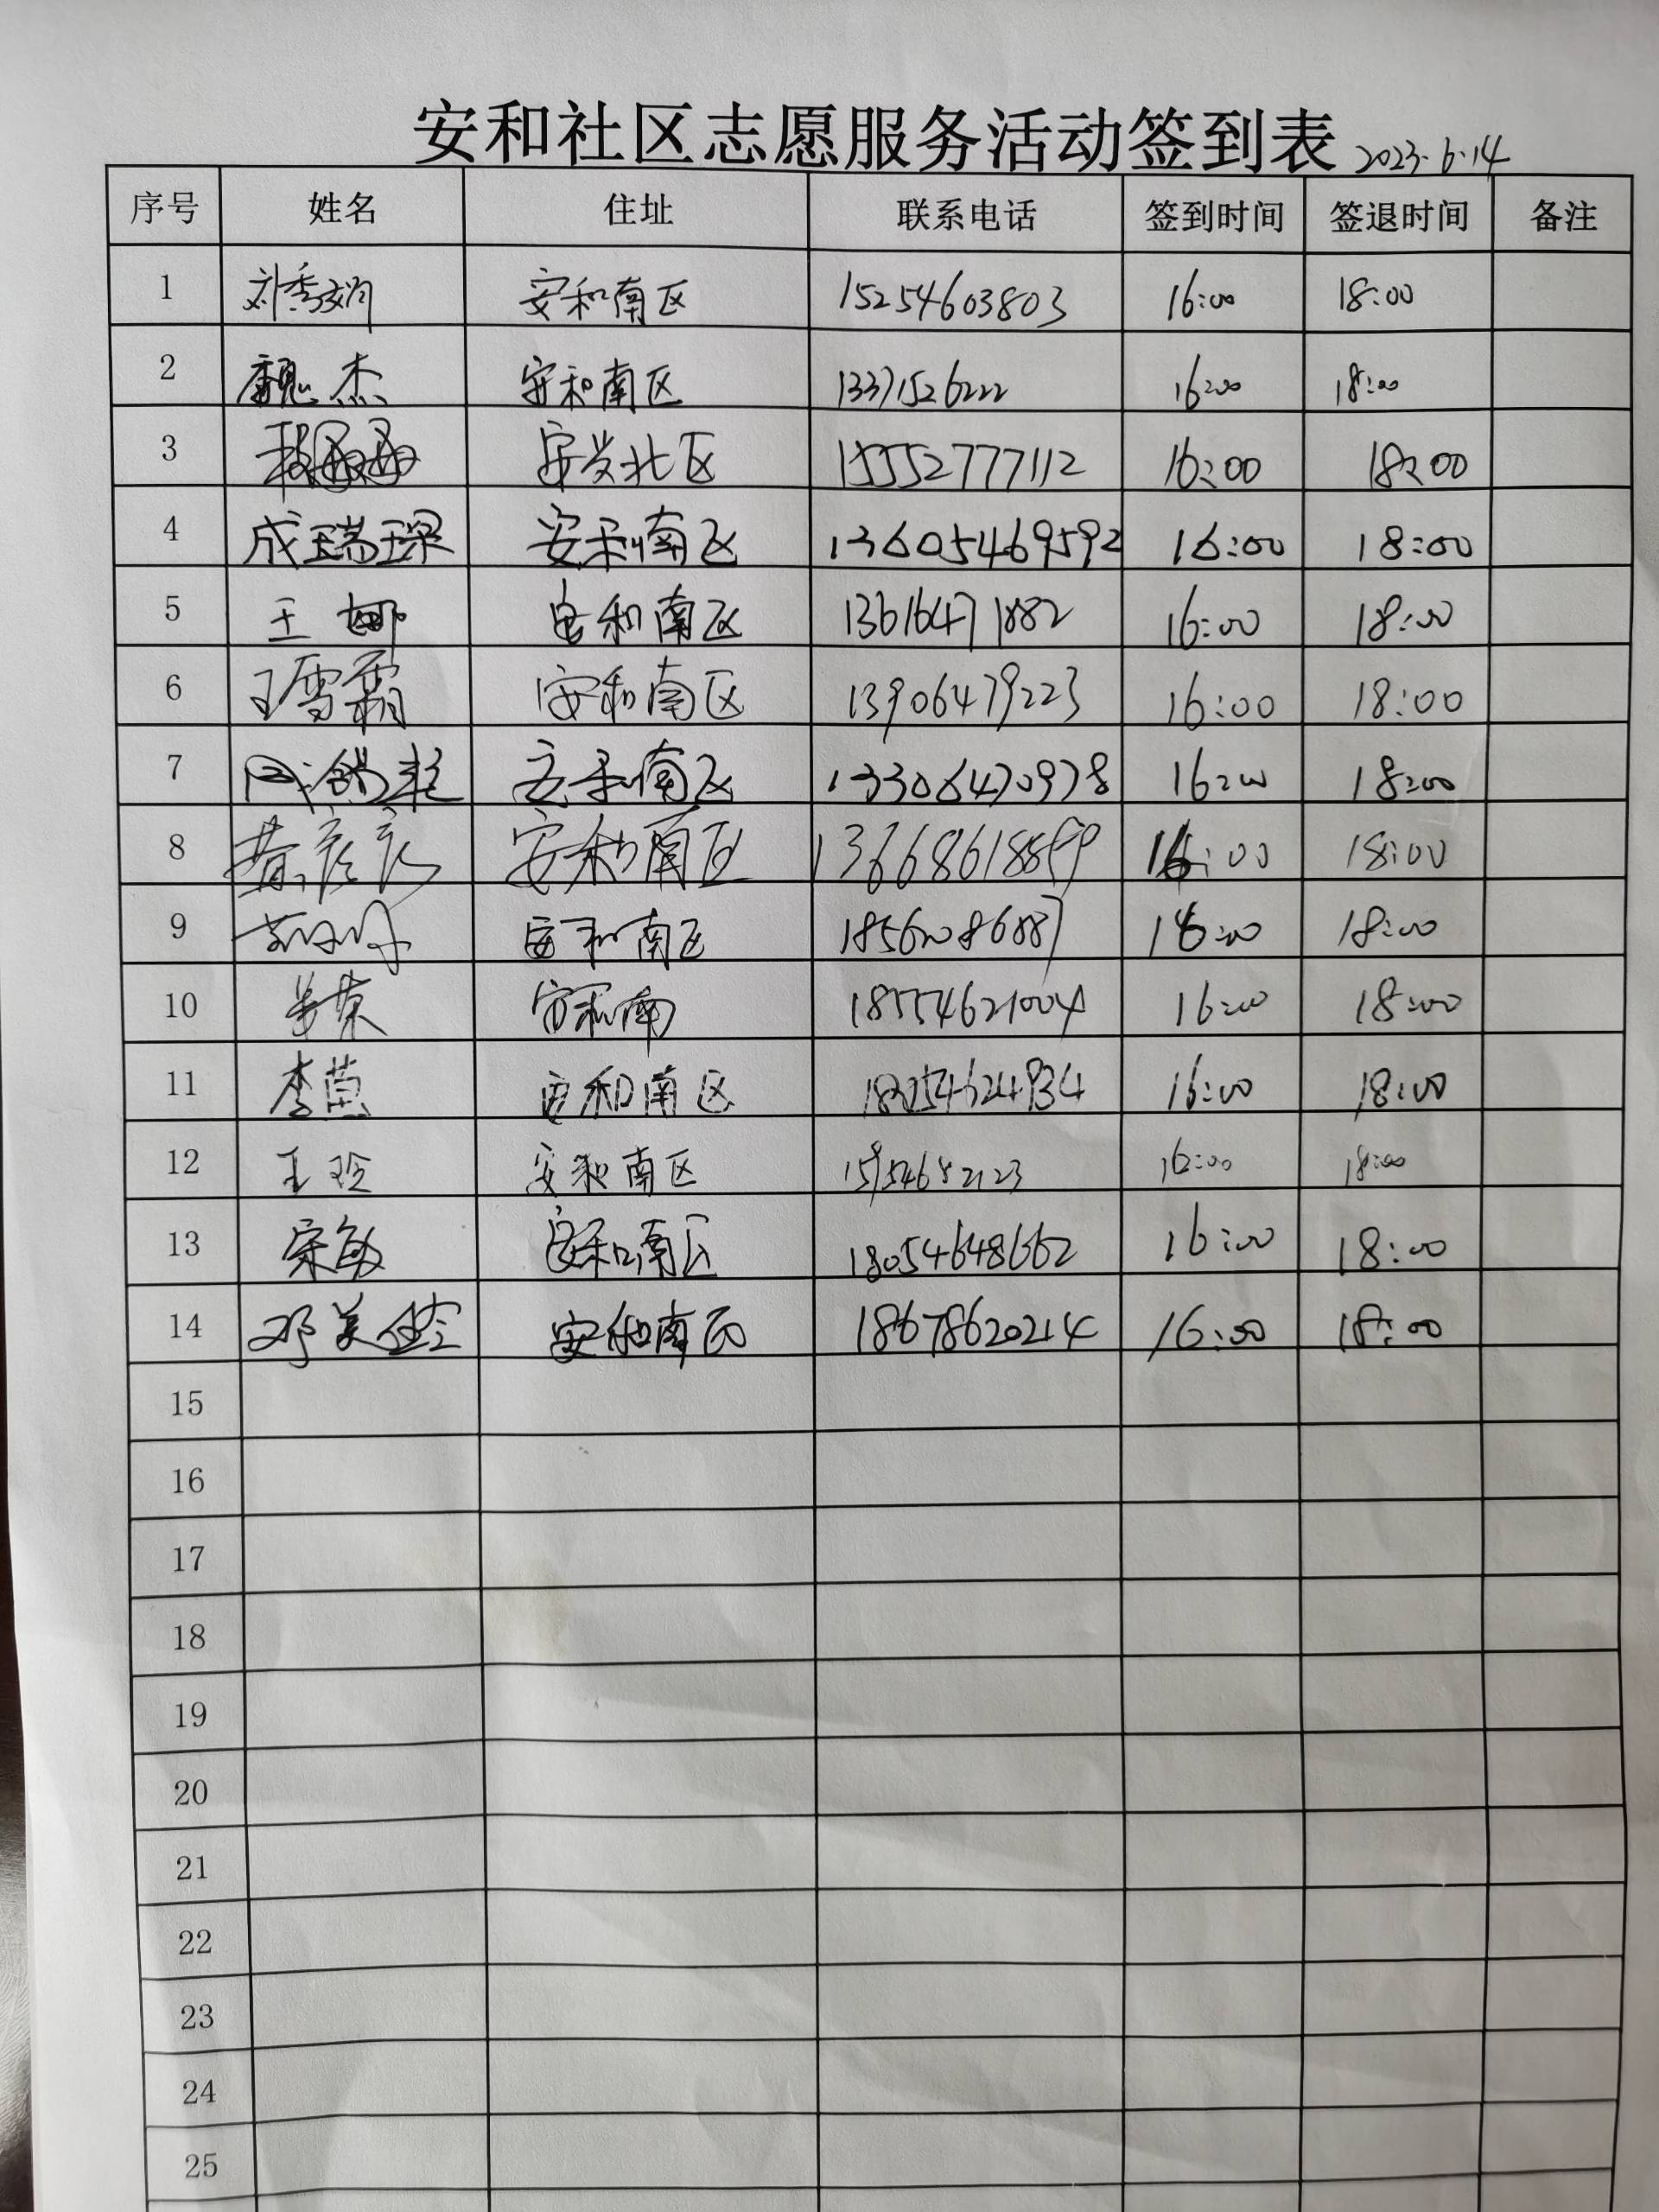 安和社区志愿服务活动签到表 2023.6.14
序号 姓名 住址 联系电话 签到时间 签退时间 备注
1 刘秀娟 安和南区 15254603803 16:00 18:00
2 魏杰 安和南区 13371526222 16:00 18:00
3 安兴北区 15552777112 16:00 18:00
4 成瑞琛 安和南区 13605469592 16:00 18:00
5 王娜 安和南区 13616471882 16:00 18:00
6 王雪霜 安和南区 13906479223 16:00 18:00
7 安和南区 13306470978 16:00 18:00
8 安和南区 16:00 18:00
9 安和南区 16:00 18:00
10 安和南 18554621004 16:00 18:00
11 李茵 安和南区 18254624934 16:00 18:00
12 王玲 安和南区 15954682123 16:00 18:00
13 宋敏 安和南区 18054648662 16:00 18:00
14 邓美 安和南区 18678620214 16:00 18:00
15
16
17
18
19
20
21
22
23
24
25